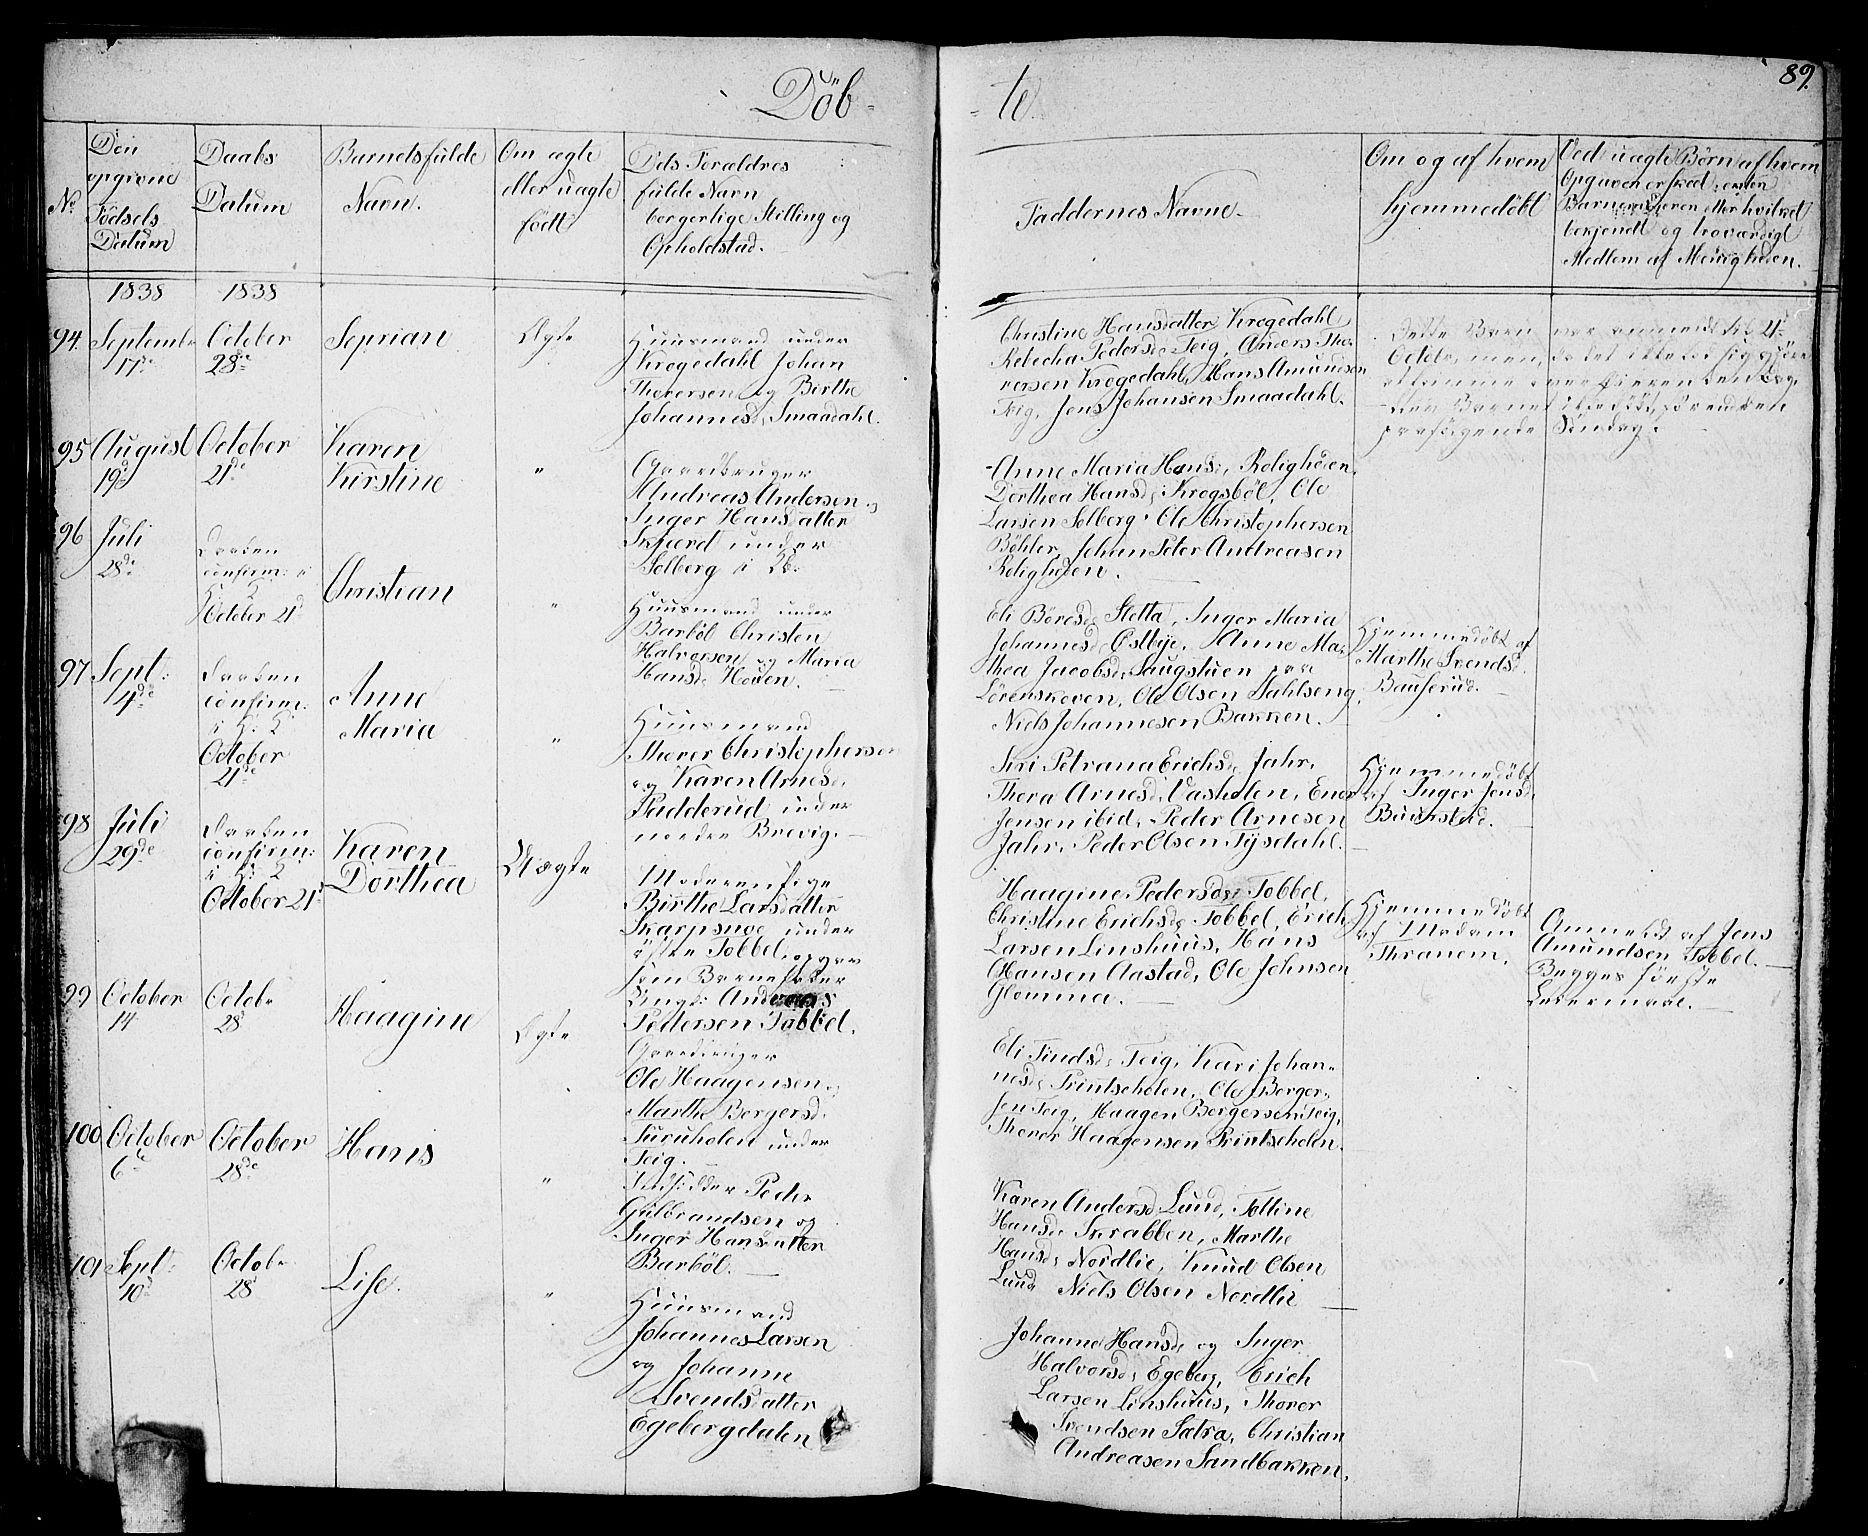 Döb-
-te.
89.
No
Den
opgivne
Födsels
Datum
Daabs
Datum
Barnets fulde
Navn.
Om ægte
eller uægte
födt
Dets Forældres
fulde Navn
borgerlige Stilling og
Opholdstad.
Faddernes Navne.
Om og af hvem
hjemmedöbt
Ved uægte Børn af hvem
Opgaven er skeed; enten
Barnemoderen eller hvilket
bekjendt og troværdigt
Medlem af Menigheden.
1838
1838
94. September
17de
October
28de
Seprian
Ægte
Huusmand under
Krogedahl Johan
Thoversen og Birthe
Johannesd. Smaadahl.
Christine Hansdatter Krogedahl
Rebecha Pedersd. Teig, Anders Tho-
versen Krogedahl, Hans Amundsen
Teig, Jens Johansen Smaadahl.
Dette Barn var anmeldt til 21de
October, men da det ikke lod sig gjöre
at komme over Öieren den Dag,
blev Barnet ikke döbt förend den
paafölgende Söndag.
95 August
19de
October
21de
Karen
Kirstine
"
Gaardbruger
Andreas Andersen og
Inger Hansdatter
Skjæret under
Solberg i Eb.
Anne Maria Hansd. Roligheden
Dorthea Hansd. Krogsböl, Ole
Larsen Solberg, Ole Christophersen
Böhler, Johan Peter Andreasen
Roligheden.
96 Juli
28de
Daaben
confirm: i
H: K:
October 21de
Christian
"
Huusmand under
Barböl Christen
Halvorsen og Maria
Hansd. Hoven.
Eli Böresd. Sletta, Inger Maria
Johannesd. Østbye, Anne Ma-
thea Jacobsd. Saugstuen paa
Lörenskoven, Ole Olsen Dahlseng,
Niels Johannesen Bakken.
Hjemmedöbt af
Marthe Svendsd.
Bauserud.
97 Sept:
4de
Daaben
confirm:
i H: K:
October
21de
Anne
Maria
"
Huusmand
Thorer Christophersen
og Karen Arnesd.
Padderud under
nordre Brevig.
Siri Petrana Erichsd. Jahr,
Thora Arnesd. Vasholen, Ener
Jensen ibid, Peder Arnesen
Jahr, Peder Olsen Tysdahl.
Hjemmedöbt
af Inger Jensd.
Buerstad.
98 Juli
29de
Daaben
confirm:
i H: K:
October 21de
Karen
Dorthea
Uægte
Moderen Pige
Birthe Larsdatter
Skarpsnoe under
östre Tobbel, opgav
som Barnefader
Ungk: Anders
Pedersen Tobbel.
Haagine Pedersd. Tobbel,
Christine Erichsd. Tobbel, Erich
Larsen Linshuus, Hans
Hansen Aastad, Ole Johnsen
Glomma.
Hjemmedöbt
af Madam
Thranem.
Anmeldt af Jens
Amundsen Tobbel.
Begges förste
Leiermaal.
99 October
14
Octobr
28
Haagine
Ægte
Gaardbruger
Ole Haagensen og
Marthe Bergersd.
Furuholen under
Teig.
Eli Findsd. Teig, Kari Johan-
nesd. Printseholen, Ole Berger-
sen Teig, Haagen Bergersen Teig,
Thorer Haagensen Printseholen.
100 October
6te
October
28de
Hans
"
Indsidder Peder
Gulbrandsen og
Inger Hansdatter
Barböl.
Karen Andersd. Lund, Foltine
Hansd. Skrabben, Marthe
Hansd. Nordlie, Knud Olsen
Lund Niels Olsen Nordlie
101 Sept:
10de
Octobr
28
Lise.
"
Huusmand
Johannes Larsen
og Johanne
Svendsdatter
Egebergdalen
Johanne Hansd. og Inger
Halvorsd. Egeberg, Erich
Larsen Linshuus, Thorer
Svendsen Sætra, Christian
Andreasen Sandbakken.